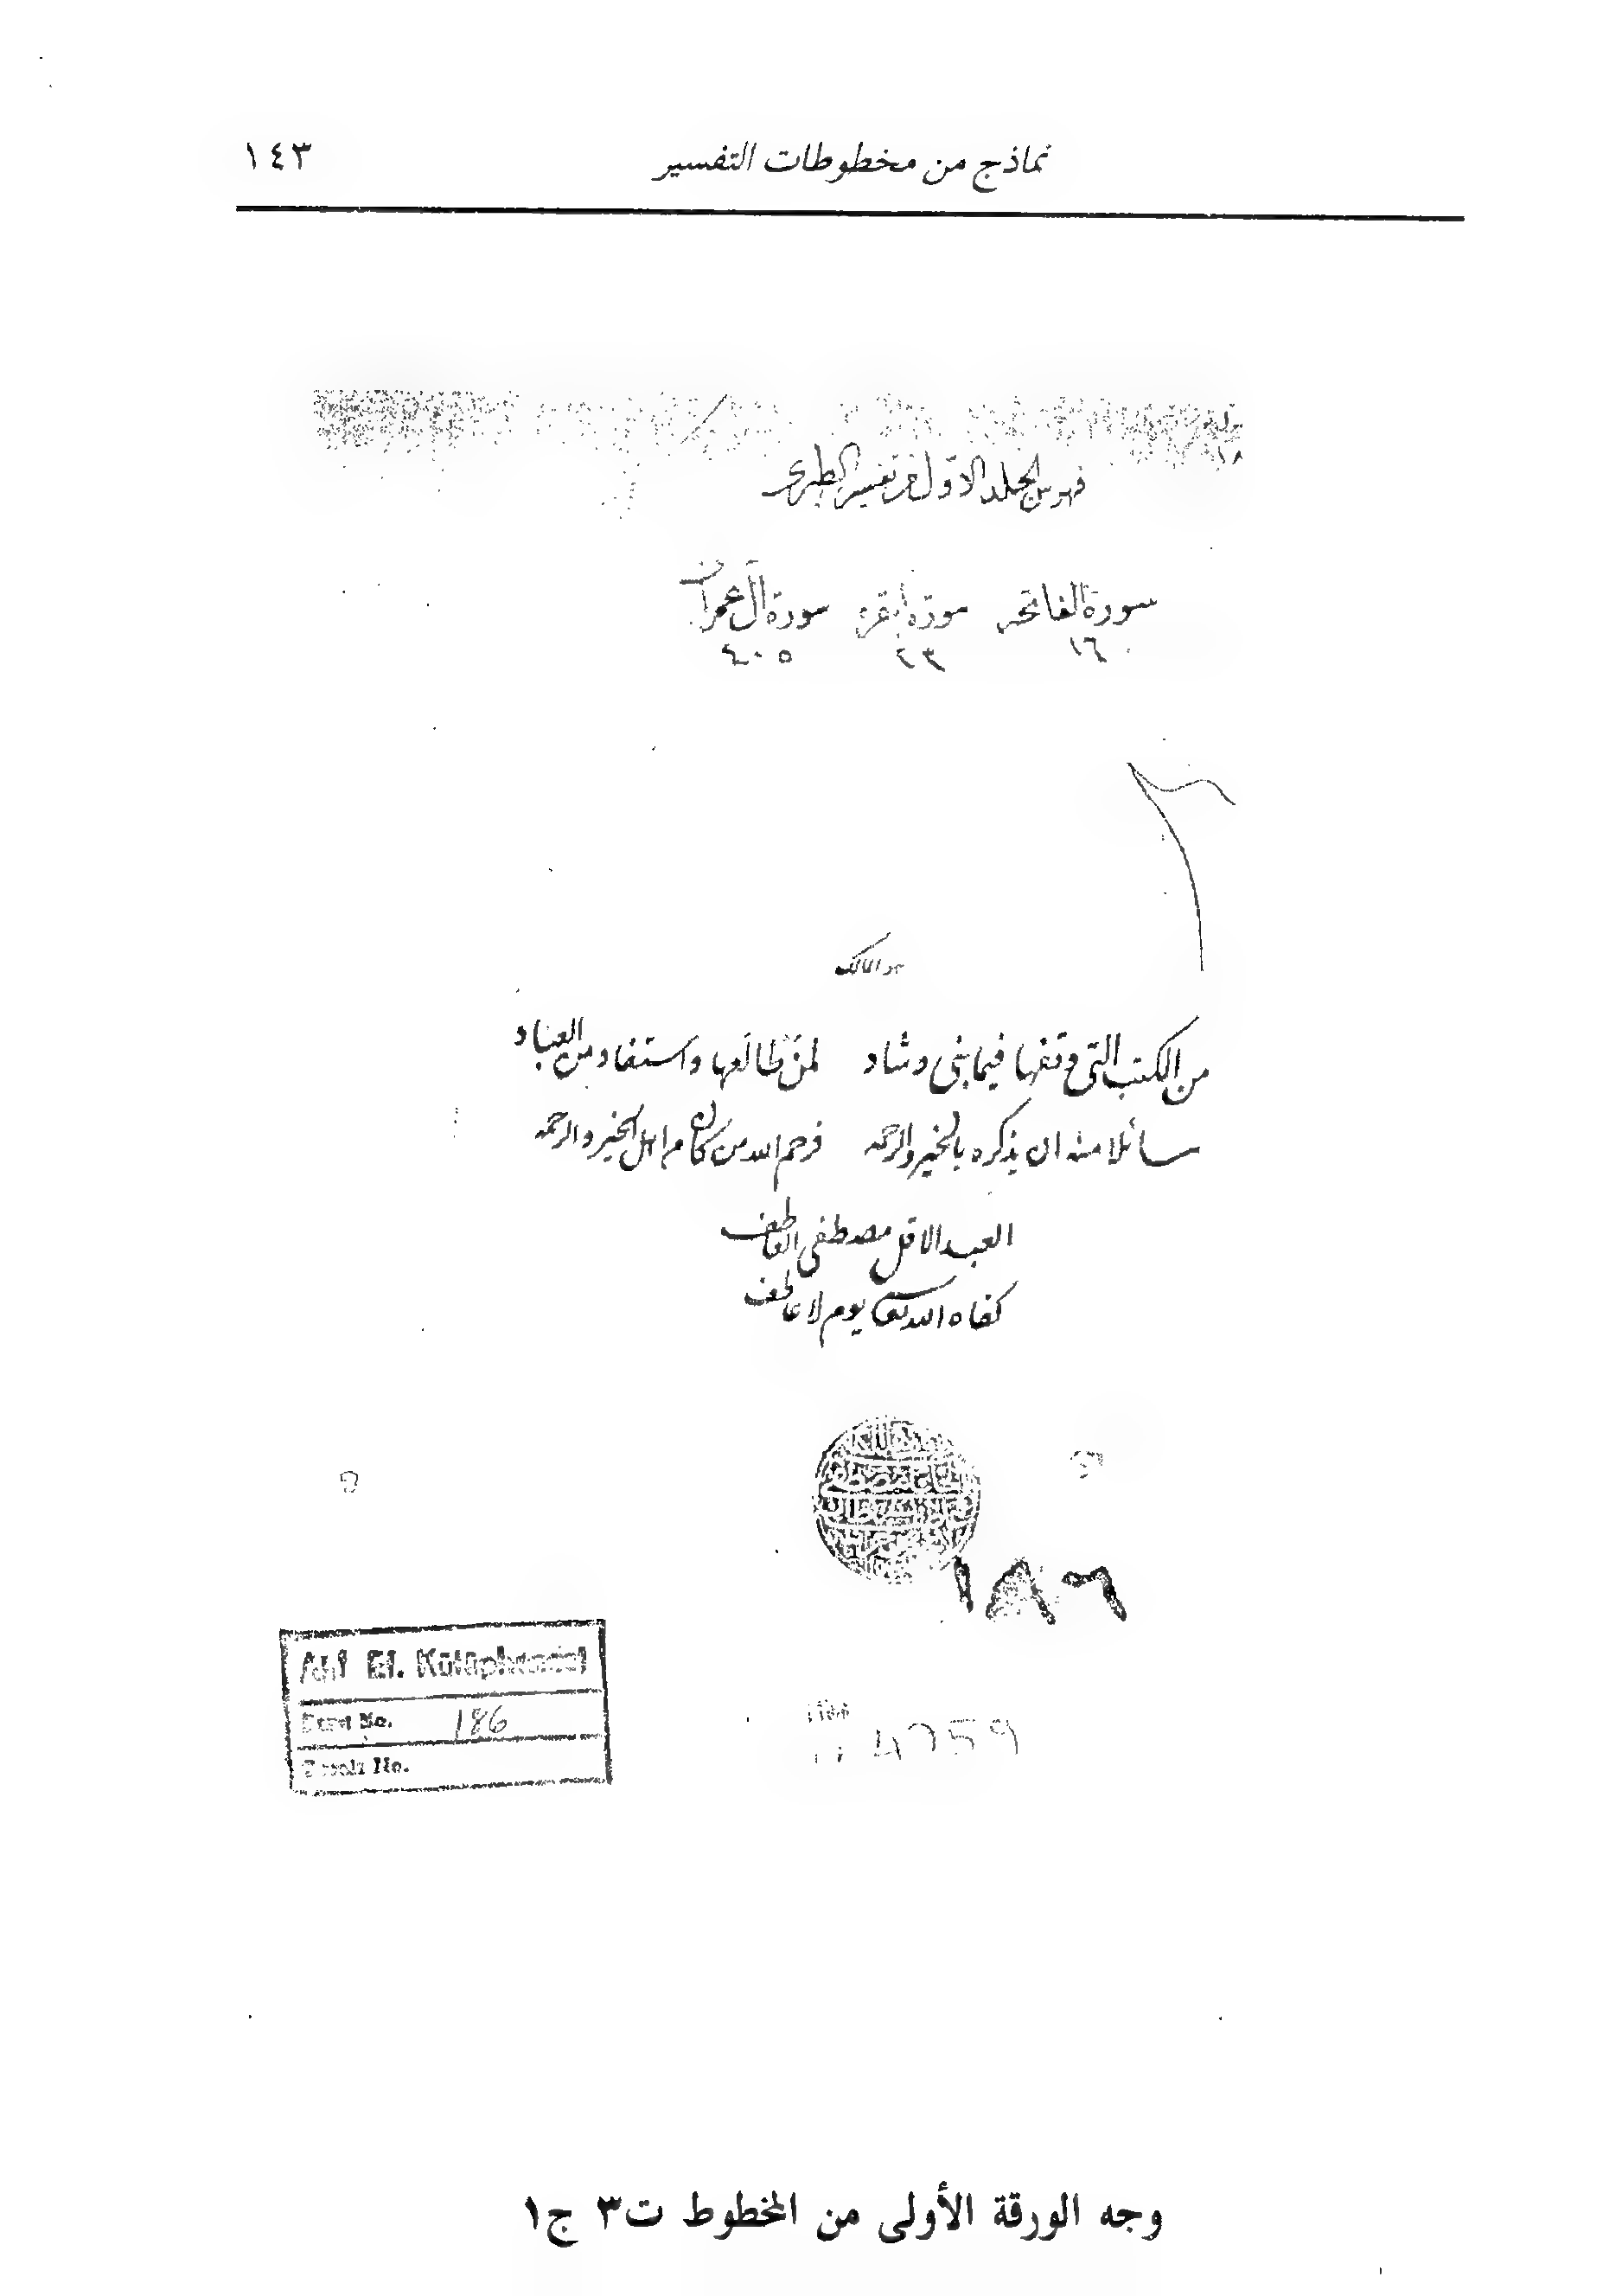 نماذج من مخطوطات التفسير ١٤٣
فهرس الجلد الاول من تفسير الطبرى
سورة الفاتحه سورة البقره سورة آل عمران
١٦ ٢٣ ٤٠٥
هو المالك
من الكتب التى وقفها فيما بنى وشاد لمن طالعها واستفاد من العباد
سائلا منه ان يذكره بالخير والرحمه فرحم الله من كان من اهل الخير والرحمه
العبد الاقل مصطفى العاطف
كفاه الله تعالى يوم لا عاطف
١٨٦
Atıf Ef. Kütüphanesi
Eski No. 186
4759
وجه الورقة الأولى من المخطوط ت٣ ج١